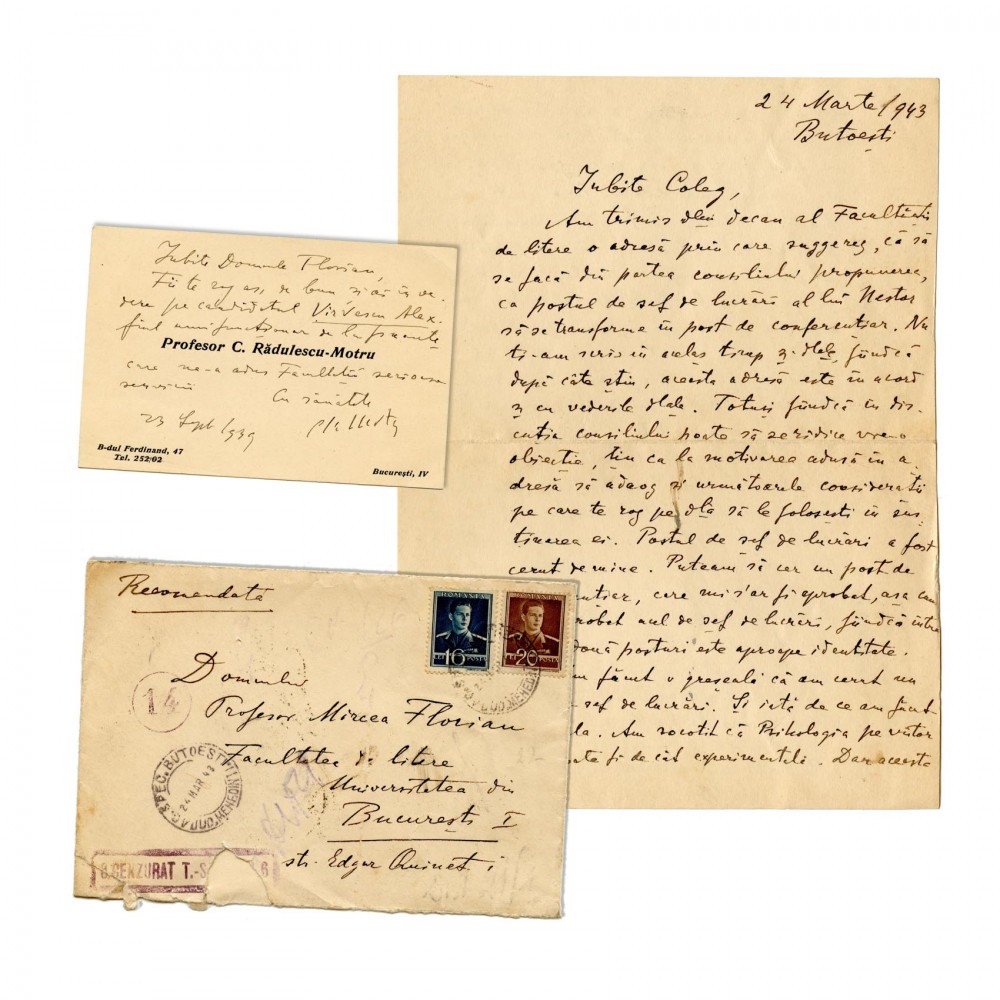 24 Marte/943
Butoești
Iubite Coleg,
Am trimis dlui decan al Facultății
de litere o adresă prin care suggerez, că să
se facă din partea consiliului propunerea,
ca postul de șef de lucrări al lui Nestor
să se transforme în post de conferențiar. Nu
ți-am scris în acelas timp și dtale, fiindcă
după câte știu, aceasta adresă este în acord
și cu vederile dtale. Totuși fiindcă în dis
cuția consiliului poate să se ridice vreo
obiecție, țin ca la motivarea adusă în a
dresă să adaog și următoarele considerații
pe care te rog pe dta să le folosești în sus
ținerea ei. Postul de șef de lucrări a fost
cerut de mine. Puteam să cer un post de
ențiar, care mi s'ar fi aprobat, așa cum
robat cel de șef de lucrări, fiindcă intre
două posturi este aproape identitate.
m făcut o greșeală că am cerut un
șef de lucrări. Și iată de ce am făcut
la. Am socotit că Psihologia pe viitor
ată fi de cât experimentală. Dar aceasta
Iubite Domnule Florian,
Fii te rog as, de bun și ai în ve
dere pe candidatul Virvescu Alex.
fiul unui funcționar de la
Profesor C. Rădulescu-Motru
care ne-a adus Facultății serioase
servicii
Cu sănătate
23 Sept 1939
B-dul Ferdinand, 47
Tel. 252/02
București, IV
Recomandată
ROMANIA
LEI 16 POSTA
ROMANIA
LEI 20 POSTA
Domnului
Profesor Mircea Florian
Facultatea de litere
Universitatea din
București I
str. Edgar Quinet 1
14
AG. SPEC. BUTOESTI
24 MAR 43
JUD. MEHEDINTI
CENZURAT T.-S
6